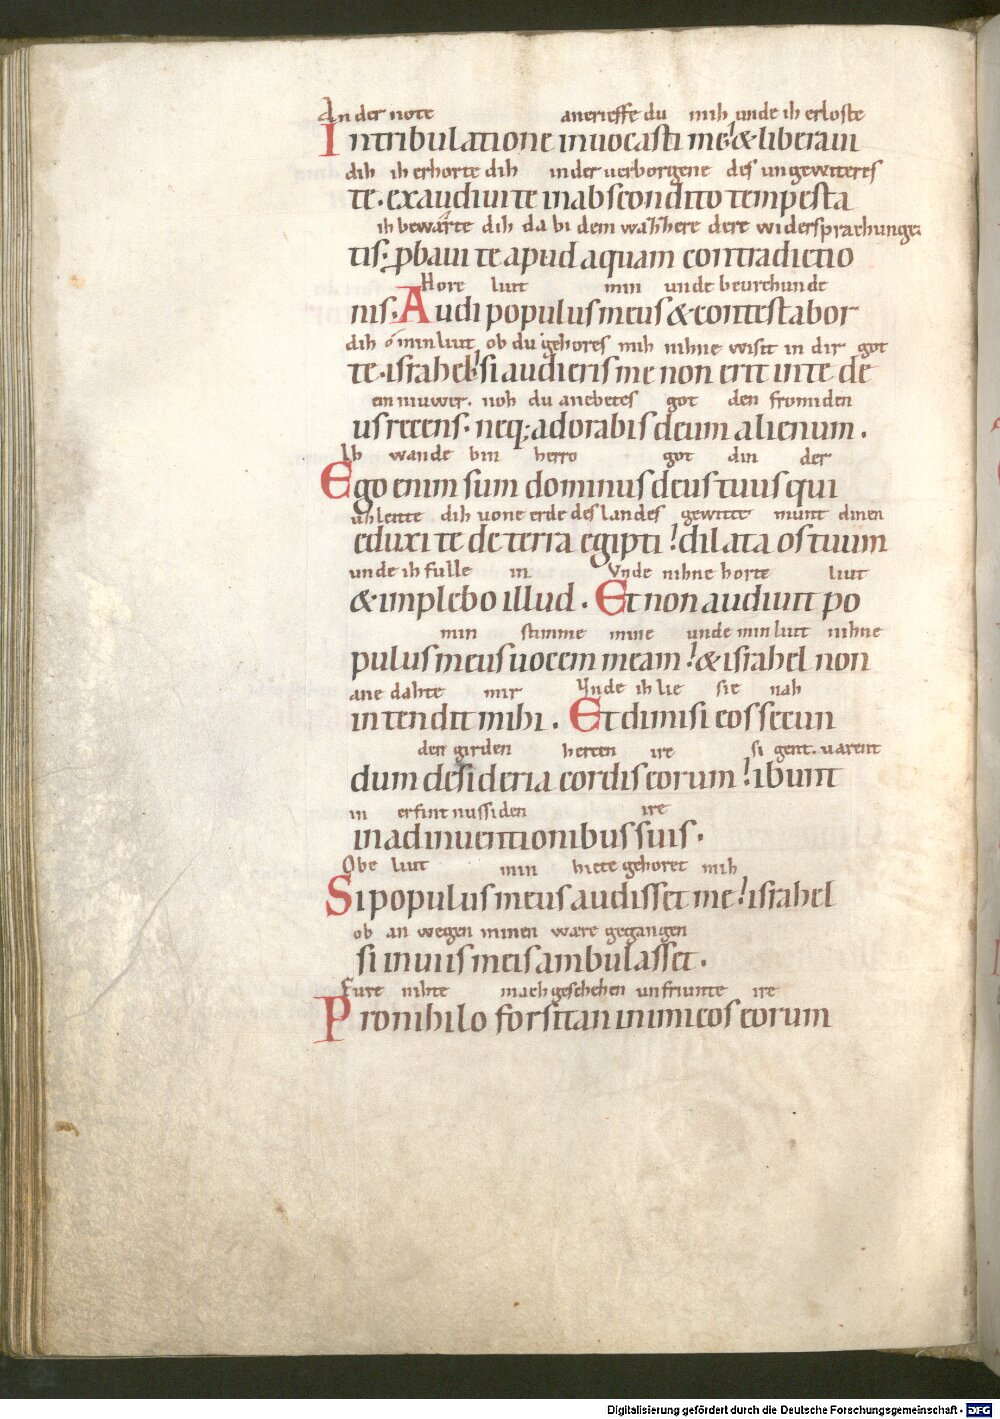 An der note anerieffe du mih unde ih erloste
In tribulatione inuocasti me & liberaui
dih ih erhorte dih in der uerborgene des ungewiteres
te. exaudiui te in abscondito tempesta
ih bewarte dih da bi dem wazzere dere widersprachunge.
tis. pbaui te apud aquam contradictio
Hore liut min unde beurchunde
nis. Audi populus meus & contestabor
dih o min liut ob du gehores mih nihne wisit in dir got
te. israhel si audieris me non erit in te de
ein niuwer. noh du anebetes got den fromiden
us recens. neq; adorabis deum alienum.
Ih wande bin herro got din der
Ego enim sum dominus deus tuus qui
uzleitte dih uone erde des landes gewitte munt dinen
eduxi te de terra egipti dilata os tuum
unde ih fulle in Vnde nihne horte liut
& implebo illud. Et non audiuit po
min stimme mine unde min liut nihne
pulus meus uocem meam & israhel non
ane dahte mir Vnde ih lie sie nah
intendit mihi. Et dimisi eos secun
den girden hercen ire si gent. uarent
dum desideria cordis eorum ibunt
in erfintnussiden ire
in adinuentionibus suis.
Obe liut min hiete gehoret mih
Si populus meus audisset me israhel
ob an wegen minen ware gegangen
si in uiis meis ambulasset.
Fure nihte mach geschehen unfriunte ire
Pro nihilo forsitan inimicos eorum
Digitalisierung gefördert durch die Deutsche Forschungsgemeinschaft - DFG